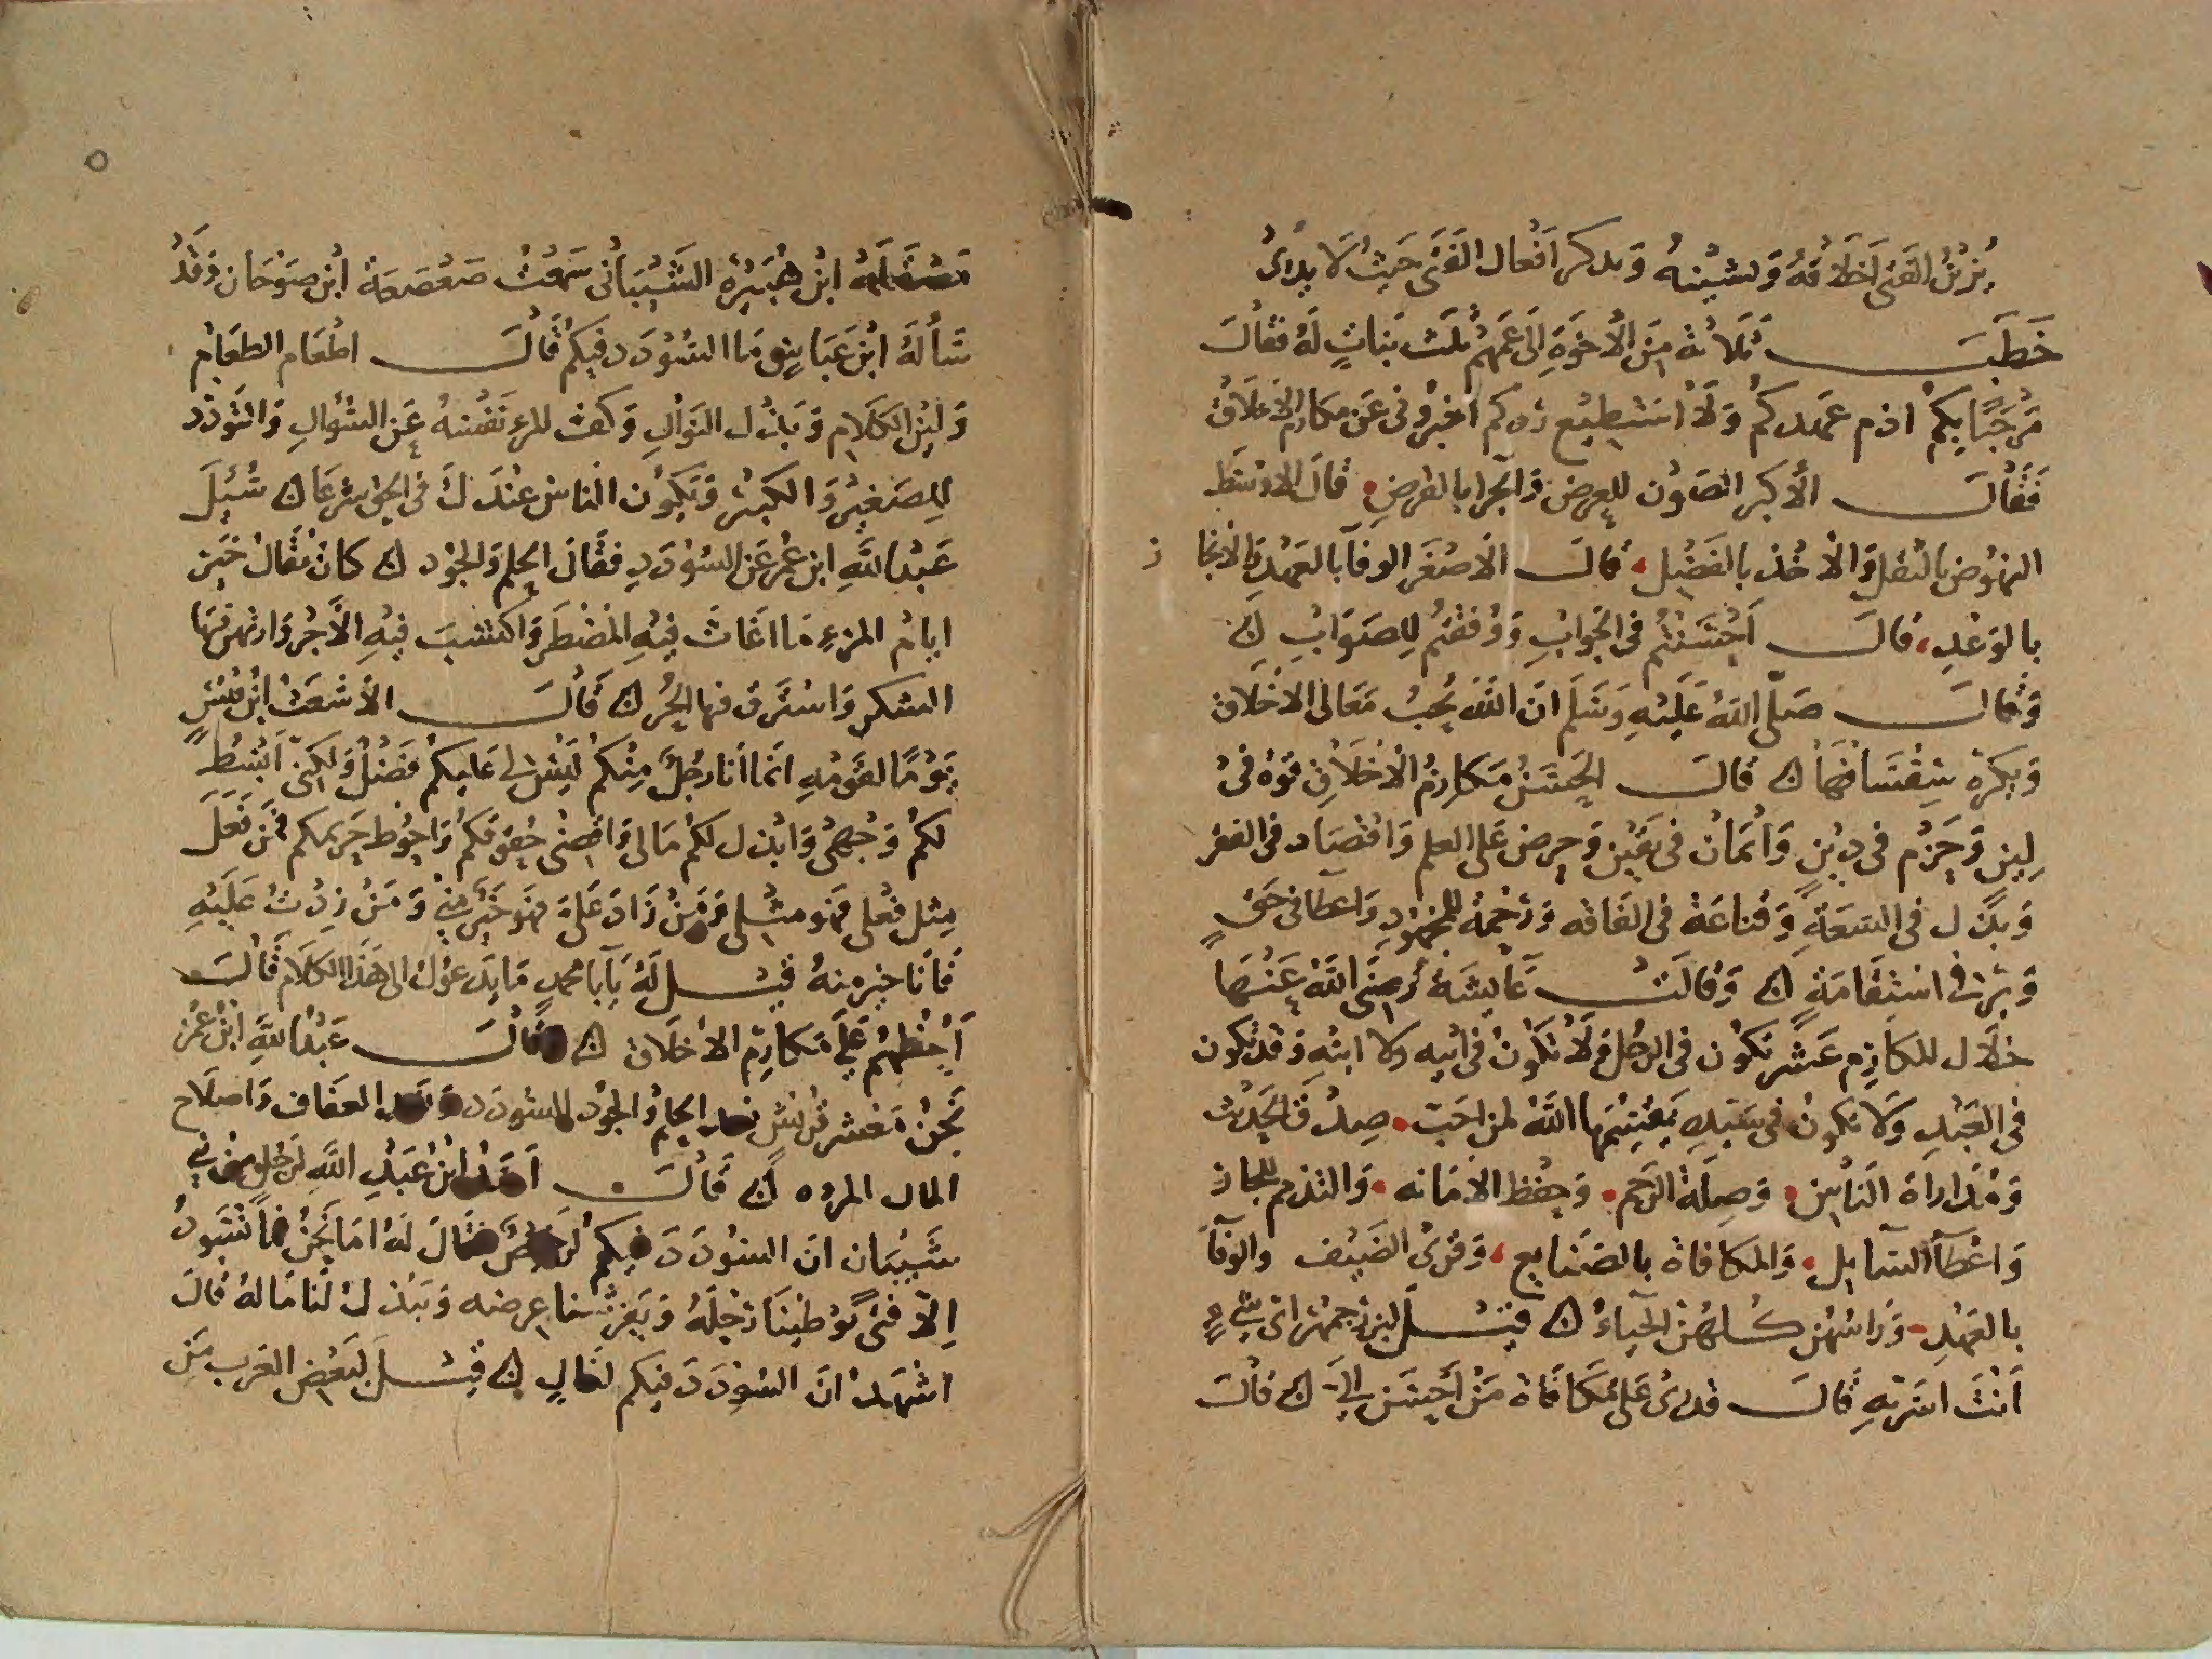 يزين الفتى اخلاقه وتشينه وتذكر افعال الفتى حيث لا يدري
خطب ثلاثة من الاخوة الى عمهم ثلث بنات له فقال
مرحبا بكم اذم عهدكم ولا استطيع ردكم اخبروني عن مكارم الاخلاق
فقال الأكبر الصون للعرض والجزا بالفرض قال الاوسط
النهوض بالثقل والأخذ بالفضل قال الاصغر الوفآ بالعهد والانجاز
بالوعد، قال احسنتم في الجواب ووفقتم للصواب
وقال صلى الله عليه وسلم ان الله يحب معالى الاخلاق
ويكره سفسافها قال الحسن مكارم الاخلاق قوة فى
لين وحزم فى دين وايمان فى يقين وحرص على العلم واقتصاد فى الفقر
وبذل فى السعة وقناعة فى الفاقه ورحمة للمجهود واعطا فى حق
وبر فى استقامة وقالت عايشة رضى الله عنها
خلال المكارم عشر تكون فى الرجل ولا تكون فى ابيه ولا ابنه وقد تكون
فى العبد ولا تكون فى سيده يقسمها الله لمن احب صدق الحديث
ومداراة الناس وصلة الرحم وحفظ الامانه والتذمم للجار
واعطآ السآيل والمكافاة بالصنايع، وقرى الضيف والوفآ
بالعهد وراسهن كلهن الحيآء قيل لبزرجمهر اى شىء
أنت اسر به قال قدرتى على مكافاة من احسن الى قال
مصقلة ابن هبيرة الشيبانى سمعت صعصعة ابن صوحان وقد
سأله ابن عباس ما السودد فيكم قال اطعام الطعام
ولين الكلام وبذل النوال وكف المرء نفسه عن السؤال والتودد
للصغير والكبير وتكون الناس عندك فى الحق شرعا سئل
عبد الله ابن عمر عن السودد فقال الحلم والجود كان يقال خير
ايام المرء ما اغاث فيه المضطر واكتسب فيه الأجر وارتهن فيها
الشكر واسترق فيها الحر قال الأشعث ابن قيس
يوما لقومه انما انا رجل منكم ليس لى عليكم فضل ولكنى ابسط
لكم وجهى وابذل لكم مالى واقضى حقوقكم واحوط حريمكم فمن فعل
مثل فعلى فهو مثلى ومن زاد على فهو خير منى ومن زدت عليه
فأنا خير منه قيل له يآ ابا محمد ما يدعوك الى هذا الكلام قال
أحظهم على مكارم الاخلاق قال عبد الله ابن عمر
نحن معشر قريش نعد الحلم والجود السودد ونعد العفاف واصلاح
المال المروه قال ابن عبد الله لرجل من بنى
شيبان ان السودد فيكم لرخيص فقال له اما نحن فما نسود
إلا فتى يوطينا رحله ويفرشنا عرضه ويبذل لنا ماله قال
اشهد ان السودد فيكم لغال قيل لبعض العرب من